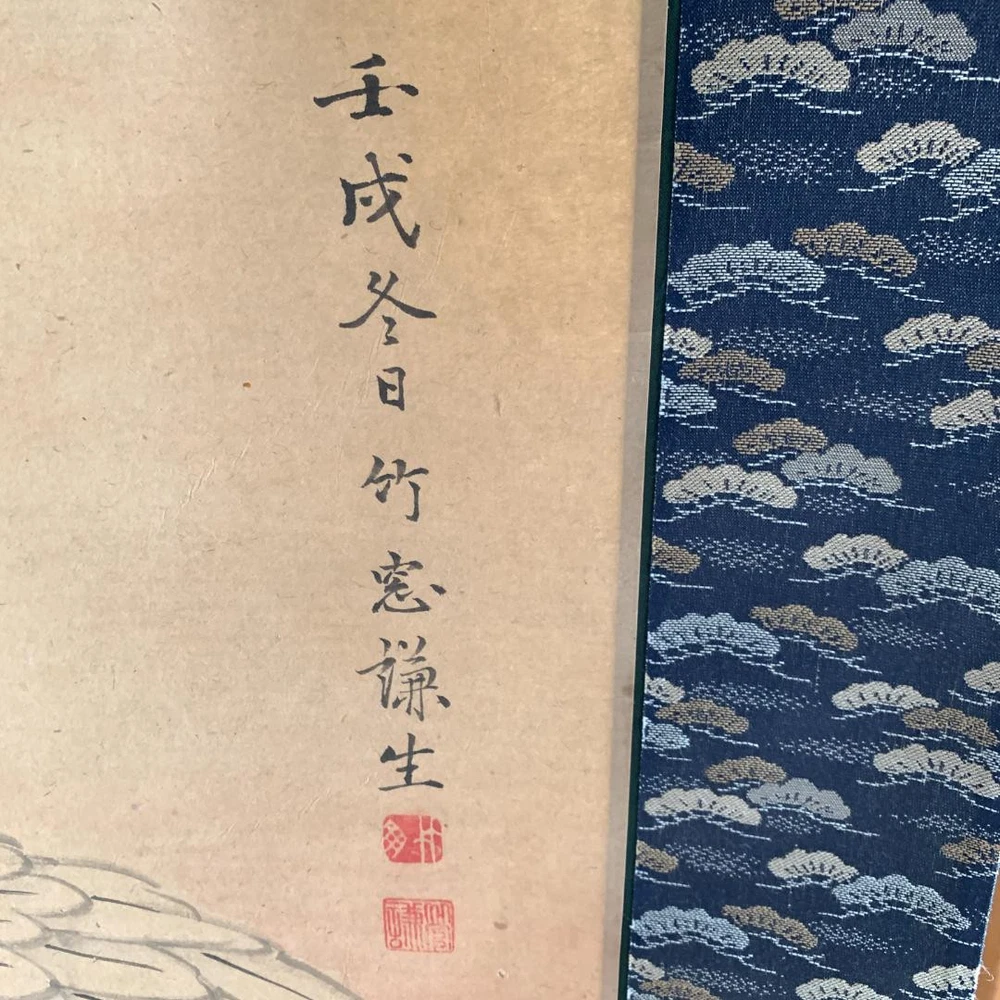 壬戌冬日竹窓謙生